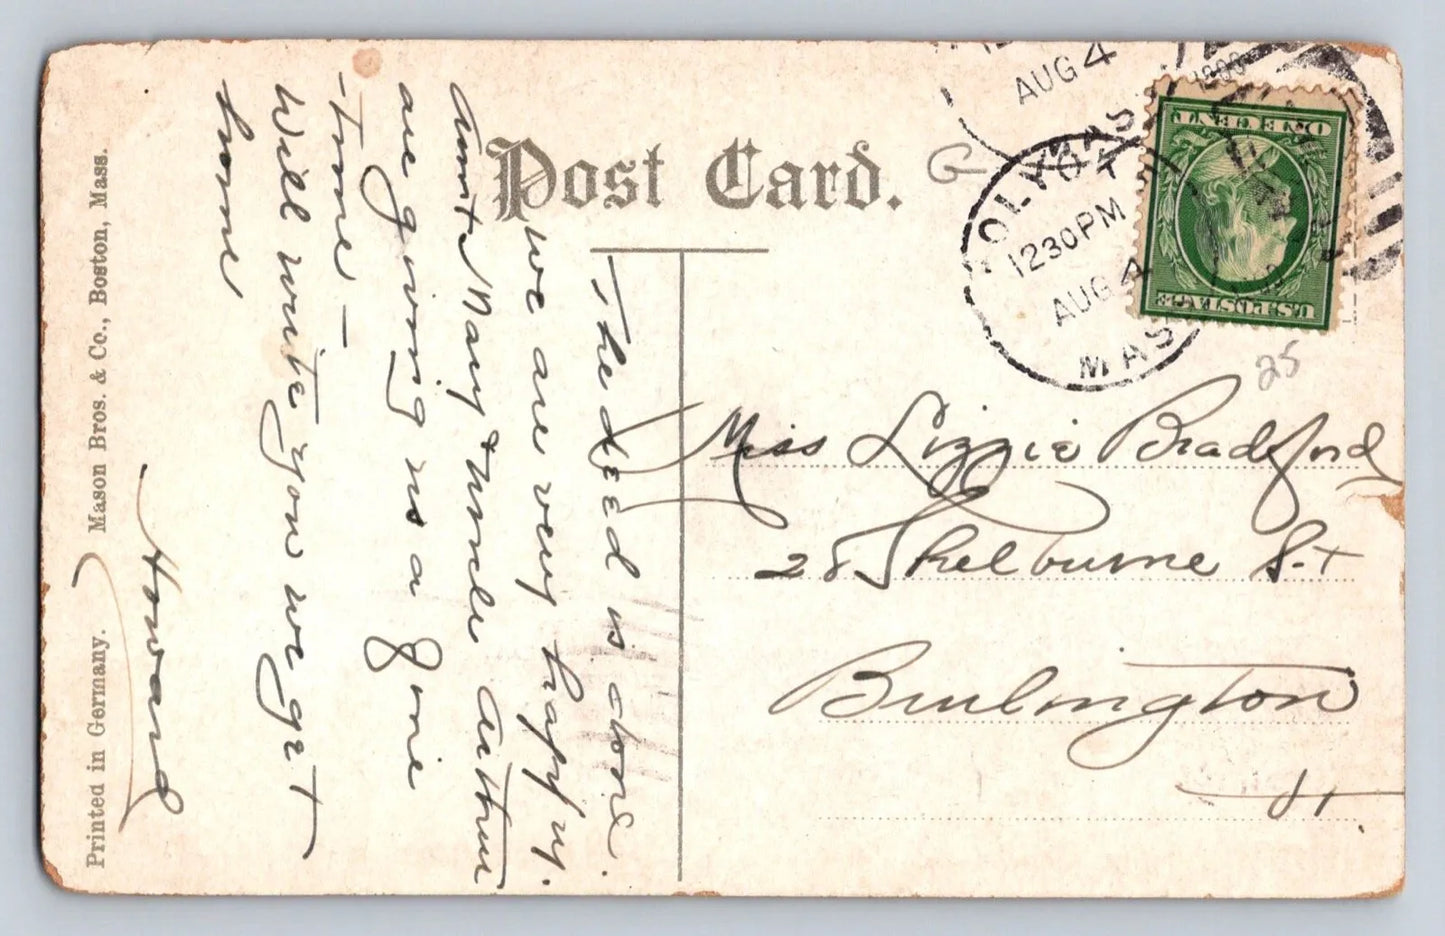 Post Card.
The deed is done.
we are very happy.
Aunt Mary & Uncle Arthur
are giving us a fine
- time -
Will write you we get
home
Howard
Printed in Germany. Mason Bros. & Co., Boston, Mass.
AUG 4
HOLYOKE
1230PM
AUG 4
MASS
ONE CENT
U.S. POSTAGE
25
Miss Lizzie Bradford
28 Shelburne St
Burlington
Vt.